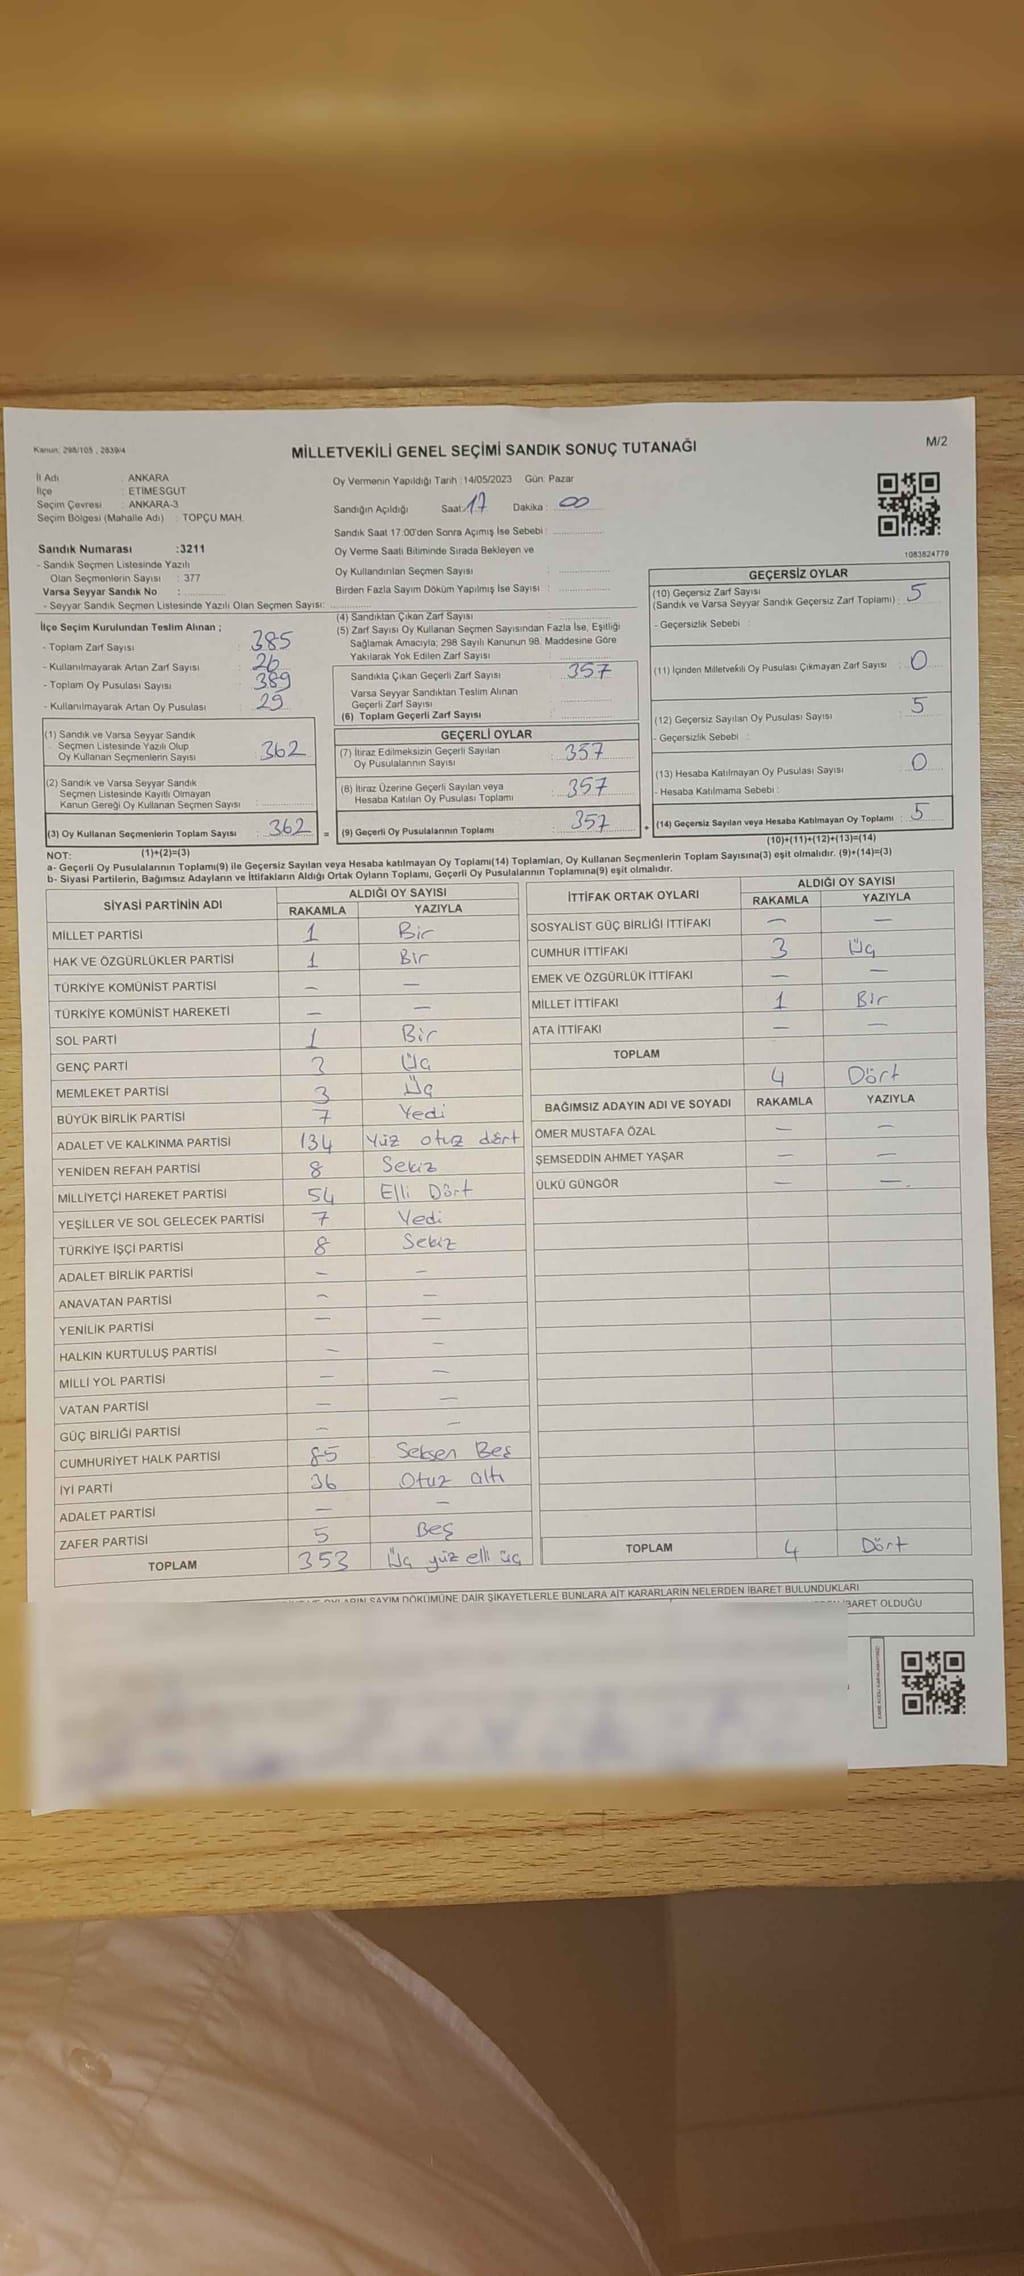 Kanun: 298/105 , 2839/4
MİLLETVEKİLİ GENEL SEÇİMİ SANDIK SONUÇ TUTANAĞI
M/2
İl Adı : ANKARA
İlçe : ETİMESGUT
Seçim Çevresi : ANKARA-3
Seçim Bölgesi (Mahalle Adı) : TOPÇU MAH.
Sandık Numarası :3211
- Sandık Seçmen Listesinde Yazılı
Olan Seçmenlerin Sayısı : 377
Varsa Seyyar Sandık No :
- Seyyar Sandık Seçmen Listesinde Yazılı Olan Seçmen Sayısı:
İlçe Seçim Kurulundan Teslim Alınan ;
- Toplam Zarf Sayısı : 385
- Kullanılmayarak Artan Zarf Sayısı : 26
- Toplam Oy Pusulası Sayısı : 389
- Kullanılmayarak Artan Oy Pusulası : 29
(1) Sandık ve Varsa Seyyar Sandık
Seçmen Listesinde Yazılı Olup
Oy Kullanan Seçmenlerin Sayısı : 362
(2) Sandık ve Varsa Seyyar Sandık
Seçmen Listesinde Kayıtlı Olmayan
Kanun Gereği Oy Kullanan Seçmen Sayısı :
(3) Oy Kullanan Seçmenlerin Toplam Sayısı : 362
(1)+(2)=(3)
Oy Vermenin Yapıldığı Tarih :14/05/2023 Gün: Pazar
Sandığın Açıldığı Saat: 17 Dakika : 00
Sandık Saat 17:00'den Sonra Açımış İse Sebebi :
Oy Verme Saati Bitiminde Sırada Bekleyen ve
Oy Kullandırılan Seçmen Sayısı :
Birden Fazla Sayım Döküm Yapılmış İse Sayısı :
(4) Sandıktan Çıkan Zarf Sayısı :
(5) Zarf Sayısı Oy Kullanan Seçmen Sayısından Fazla İse, Eşitliği
Sağlamak Amacıyla; 298 Sayılı Kanunun 98. Maddesine Göre
Yakılarak Yok Edilen Zarf Sayısı
Sandıkta Çıkan Geçerli Zarf Sayısı : 357
Varsa Seyyar Sandıktan Teslim Alınan
Geçerli Zarf Sayısı :
(6) Toplam Geçerli Zarf Sayısı :
GEÇERLİ OYLAR
(7) İtiraz Edilmeksizin Geçerli Sayılan
Oy Pusulalarının Sayısı : 357
(8) İtiraz Üzerine Geçerli Sayılan veya
Hesaba Katılan Oy Pusulası Toplamı : 357
= (9) Geçerli Oy Pusulalarının Toplamı : 357 +
1083824779
GEÇERSİZ OYLAR
(10) Geçersiz Zarf Sayısı
(Sandık ve Varsa Seyyar Sandık Geçersiz Zarf Toplamı) : 5
- Geçersizlik Sebebi :
(11) İçinden Milletvekili Oy Pusulası Çıkmayan Zarf Sayısı : 0
(12) Geçersiz Sayılan Oy Pusulası Sayısı : 5
- Geçersizlik Sebebi :
(13) Hesaba Katılmayan Oy Pusulası Sayısı : 0
- Hesaba Katılmama Sebebi :
(14) Geçersiz Sayılan veya Hesaba Katılmayan Oy Toplamı : 5
(10)+(11)+(12)+(13)=(14)
NOT:
a- Geçerli Oy Pusulaların Toplamı(9) ile Geçersiz Sayılan veya Hesaba katılmayan Oy Toplamı(14) Toplamları, Oy Kullanan Seçmenlerin Toplam Sayısına(3) eşit olmalıdır. (9)+(14)=(3)
b- Siyasi Partilerin, Bağımsız Adayların ve İttifakların Aldığı Ortak Oyların Toplamı, Geçerli Oy Pusulalarının Toplamına(9) eşit olmalıdır.
SİYASİ PARTİNİN ADI ALDIĞI OY SAYISI
RAKAMLA YAZIYLA
MİLLET PARTİSİ 1 Bir
HAK VE ÖZGÜRLÜKLER PARTİSİ 1 Bir
TÜRKİYE KOMÜNİST PARTİSİ — —
TÜRKİYE KOMÜNİST HAREKETİ — —
SOL PARTİ 1 Bir
GENÇ PARTİ 3 Üç
MEMLEKET PARTİSİ 3 Üç
BÜYÜK BİRLİK PARTİSİ 7 Yedi
ADALET VE KALKINMA PARTİSİ 134 Yüz otuz dört
YENİDEN REFAH PARTİSİ 8 Sekiz
MİLLİYETÇİ HAREKET PARTİSİ 54 Elli Dört
YEŞİLLER VE SOL GELECEK PARTİSİ 7 Yedi
TÜRKİYE İŞÇİ PARTİSİ 8 Sekiz
ADALET BİRLİK PARTİSİ — —
ANAVATAN PARTİSİ — —
YENİLİK PARTİSİ — —
HALKIN KURTULUŞ PARTİSİ — —
MİLLİ YOL PARTİSİ — —
VATAN PARTİSİ — —
GÜÇ BİRLİĞİ PARTİSİ — —
CUMHURİYET HALK PARTİSİ 85 Seksen Beş
İYİ PARTİ 36 Otuz altı
ADALET PARTİSİ — —
ZAFER PARTİSİ 5 Beş
TOPLAM 353 Üç yüz elli üç
İTTİFAK ORTAK OYLARI ALDIĞI OY SAYISI
RAKAMLA YAZIYLA
SOSYALİST GÜÇ BİRLİĞİ İTTİFAKI — —
CUMHUR İTTİFAKI 3 Üç
EMEK VE ÖZGÜRLÜK İTTİFAKI — —
MİLLET İTTİFAKI 1 Bir
ATA İTTİFAKI — —
TOPLAM 4 Dört
BAĞIMSIZ ADAYIN ADI VE SOYADI RAKAMLA YAZIYLA
ÖMER MUSTAFA ÖZAL — —
ŞEMSEDDİN AHMET YAŞAR — —
ÜLKÜ GÜNGÖR — —
TOPLAM 4 Dört
SAYIM DÖKÜMÜNE DAİR ŞİKAYETLERLE BUNLARA AİT KARARLARIN NELERDEN İBARET BULUNDUKLARI
İBARET OLDUĞU